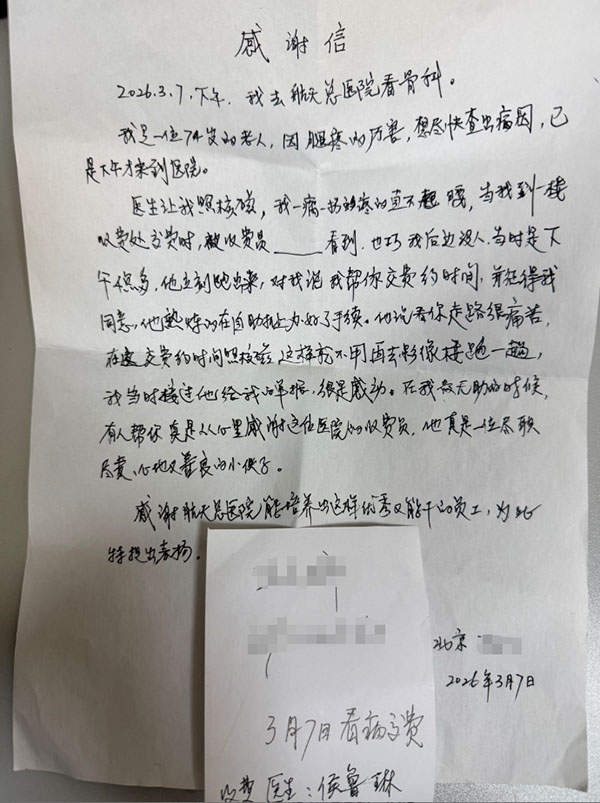 感谢信
2026.3.7.下午.我去航天总医院看骨科。
我是一位74岁的老人,因腿疼的厉害,想尽快查出病因,已
是下午才来到医院。
医生让我照核磁,我一瘸一拐的疼的直不起腰,当我到一楼
收费处交费时,被收费员______看到.也巧我后边没人.当时是下
午很多,他立刻跑出来,对我说我帮你交费约时间,并征得我
同意,他熟练的在自助机上办好了手续。他说看你走路很痛苦,
在这交费约时间照核磁这样就不用再去影像楼跑一趟,
我当时接过他给我的单据.很是感动。在我最无助的时候,
有人帮你真是从心里感谢这位医院的收费员,他真是一位尽职
尽责、心地又善良的小伙子。
感谢航天总医院能培养出这样优秀又能干的员工,为此
特提出表扬。
北京
2026年3月7日
3月7日看病交费
收费医生:侯鲁琳